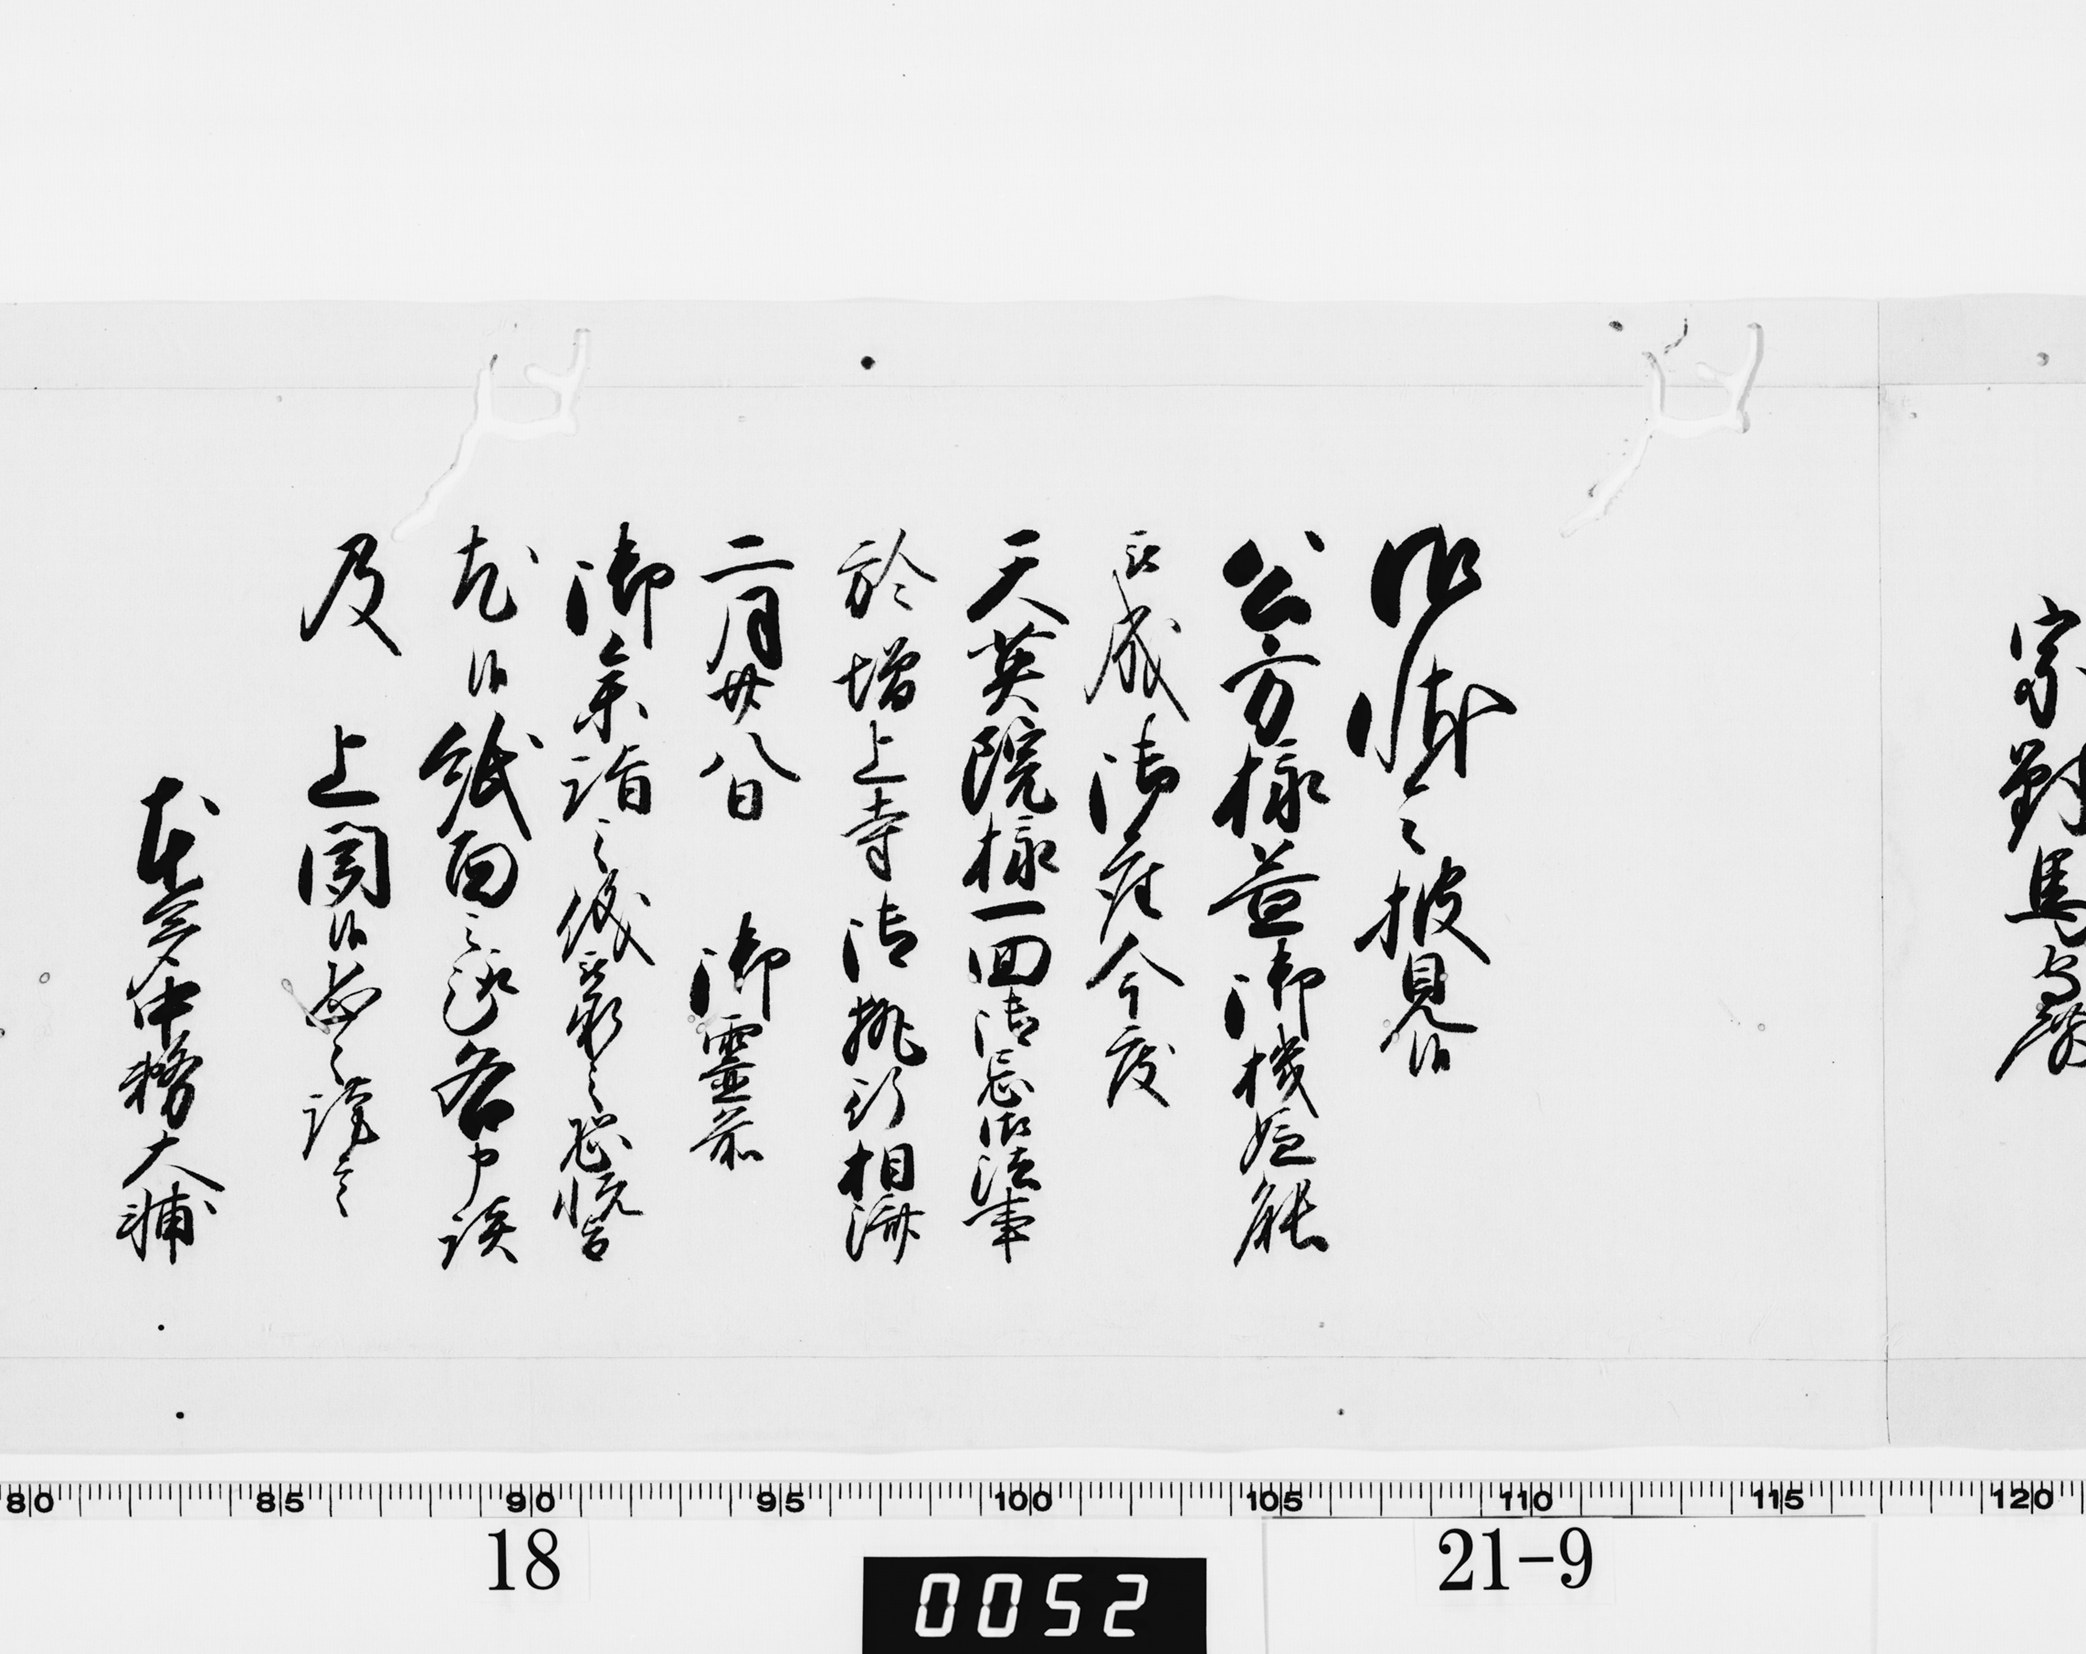 宗對馬守殿
御状令披見候
公方様益御機嫌能
被成御座今度
天英院様一回御忌御法事
於増上寺御執行相済
二月廿八日 御霊前
御参詣之儀被承之恐悦旨
尤候紙面之趣各申談
及 上聞候恐々謹言
本多中務大輔
80 85 90 95 100 105 110 115 120
18 0052 21-9